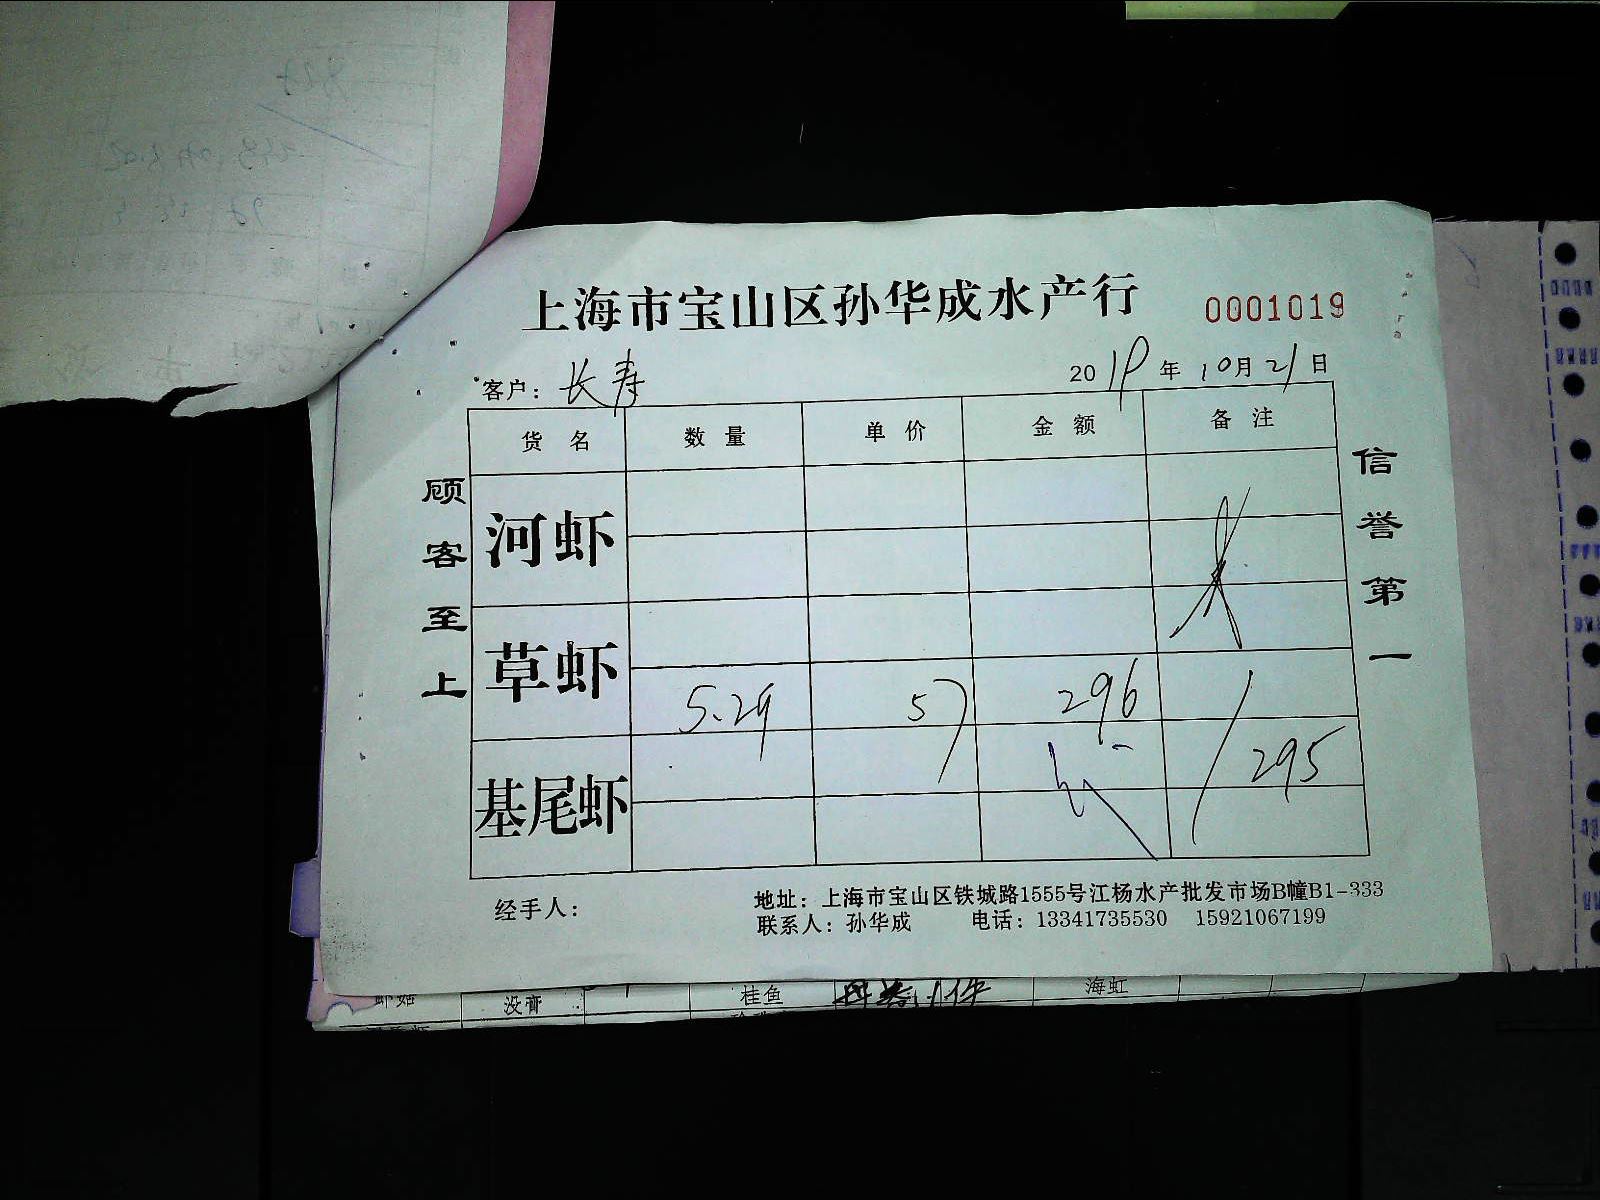 上海市宝山区孙华成水产行 0001019
客户：长寿 2019年10月21日
货名 数量 单价 金额 备注
顾客至上
信誉第一
河虾
草虾
5.29 57 296
基尾虾
295
经手人：
地址：上海市宝山区铁城路1555号江杨水产批发市场B幢B1-333
联系人：孙华成 电话：13341735530 15921067199
虾姑 没膏 桂鱼 海虹